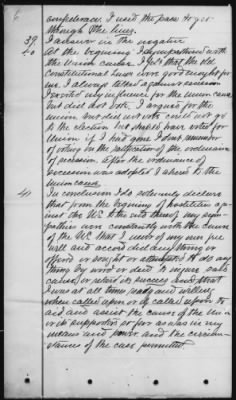 6
confederacy I used the pass to get
through the lines.
39 I answer in the negative
40 At the beginning I sympathized with
the Union cause. I felt that the old
Constitutional laws were good enough for
us. I always talked against secession
I exerted my influence for the Union cause
but did not vote. I argued for the
Union. but did not vote could not go
to the election but should have voted for
Union if I had gone I dont remember
of voting on the ratification of the ordinance
of secession. After the ordinance of
secession was adopted I adhered to the
Union cause.
41 In conclusion I do solemnly declare
that from the beginning of hostilities ag-
inst the US to the end thereof my sym-
pathies were constantly with the cause
of the US that I never of my own free
will and accord did any thing or
offered or sought or attempted to do any
thing by word or deed to injure said
cause or retard its success and that
I was at all times ready and willing
when called upon or if called upon to
aid and assist the cause of the Union
or its supporters so far as was in my
means and power and the circum-
stances of the case permitted